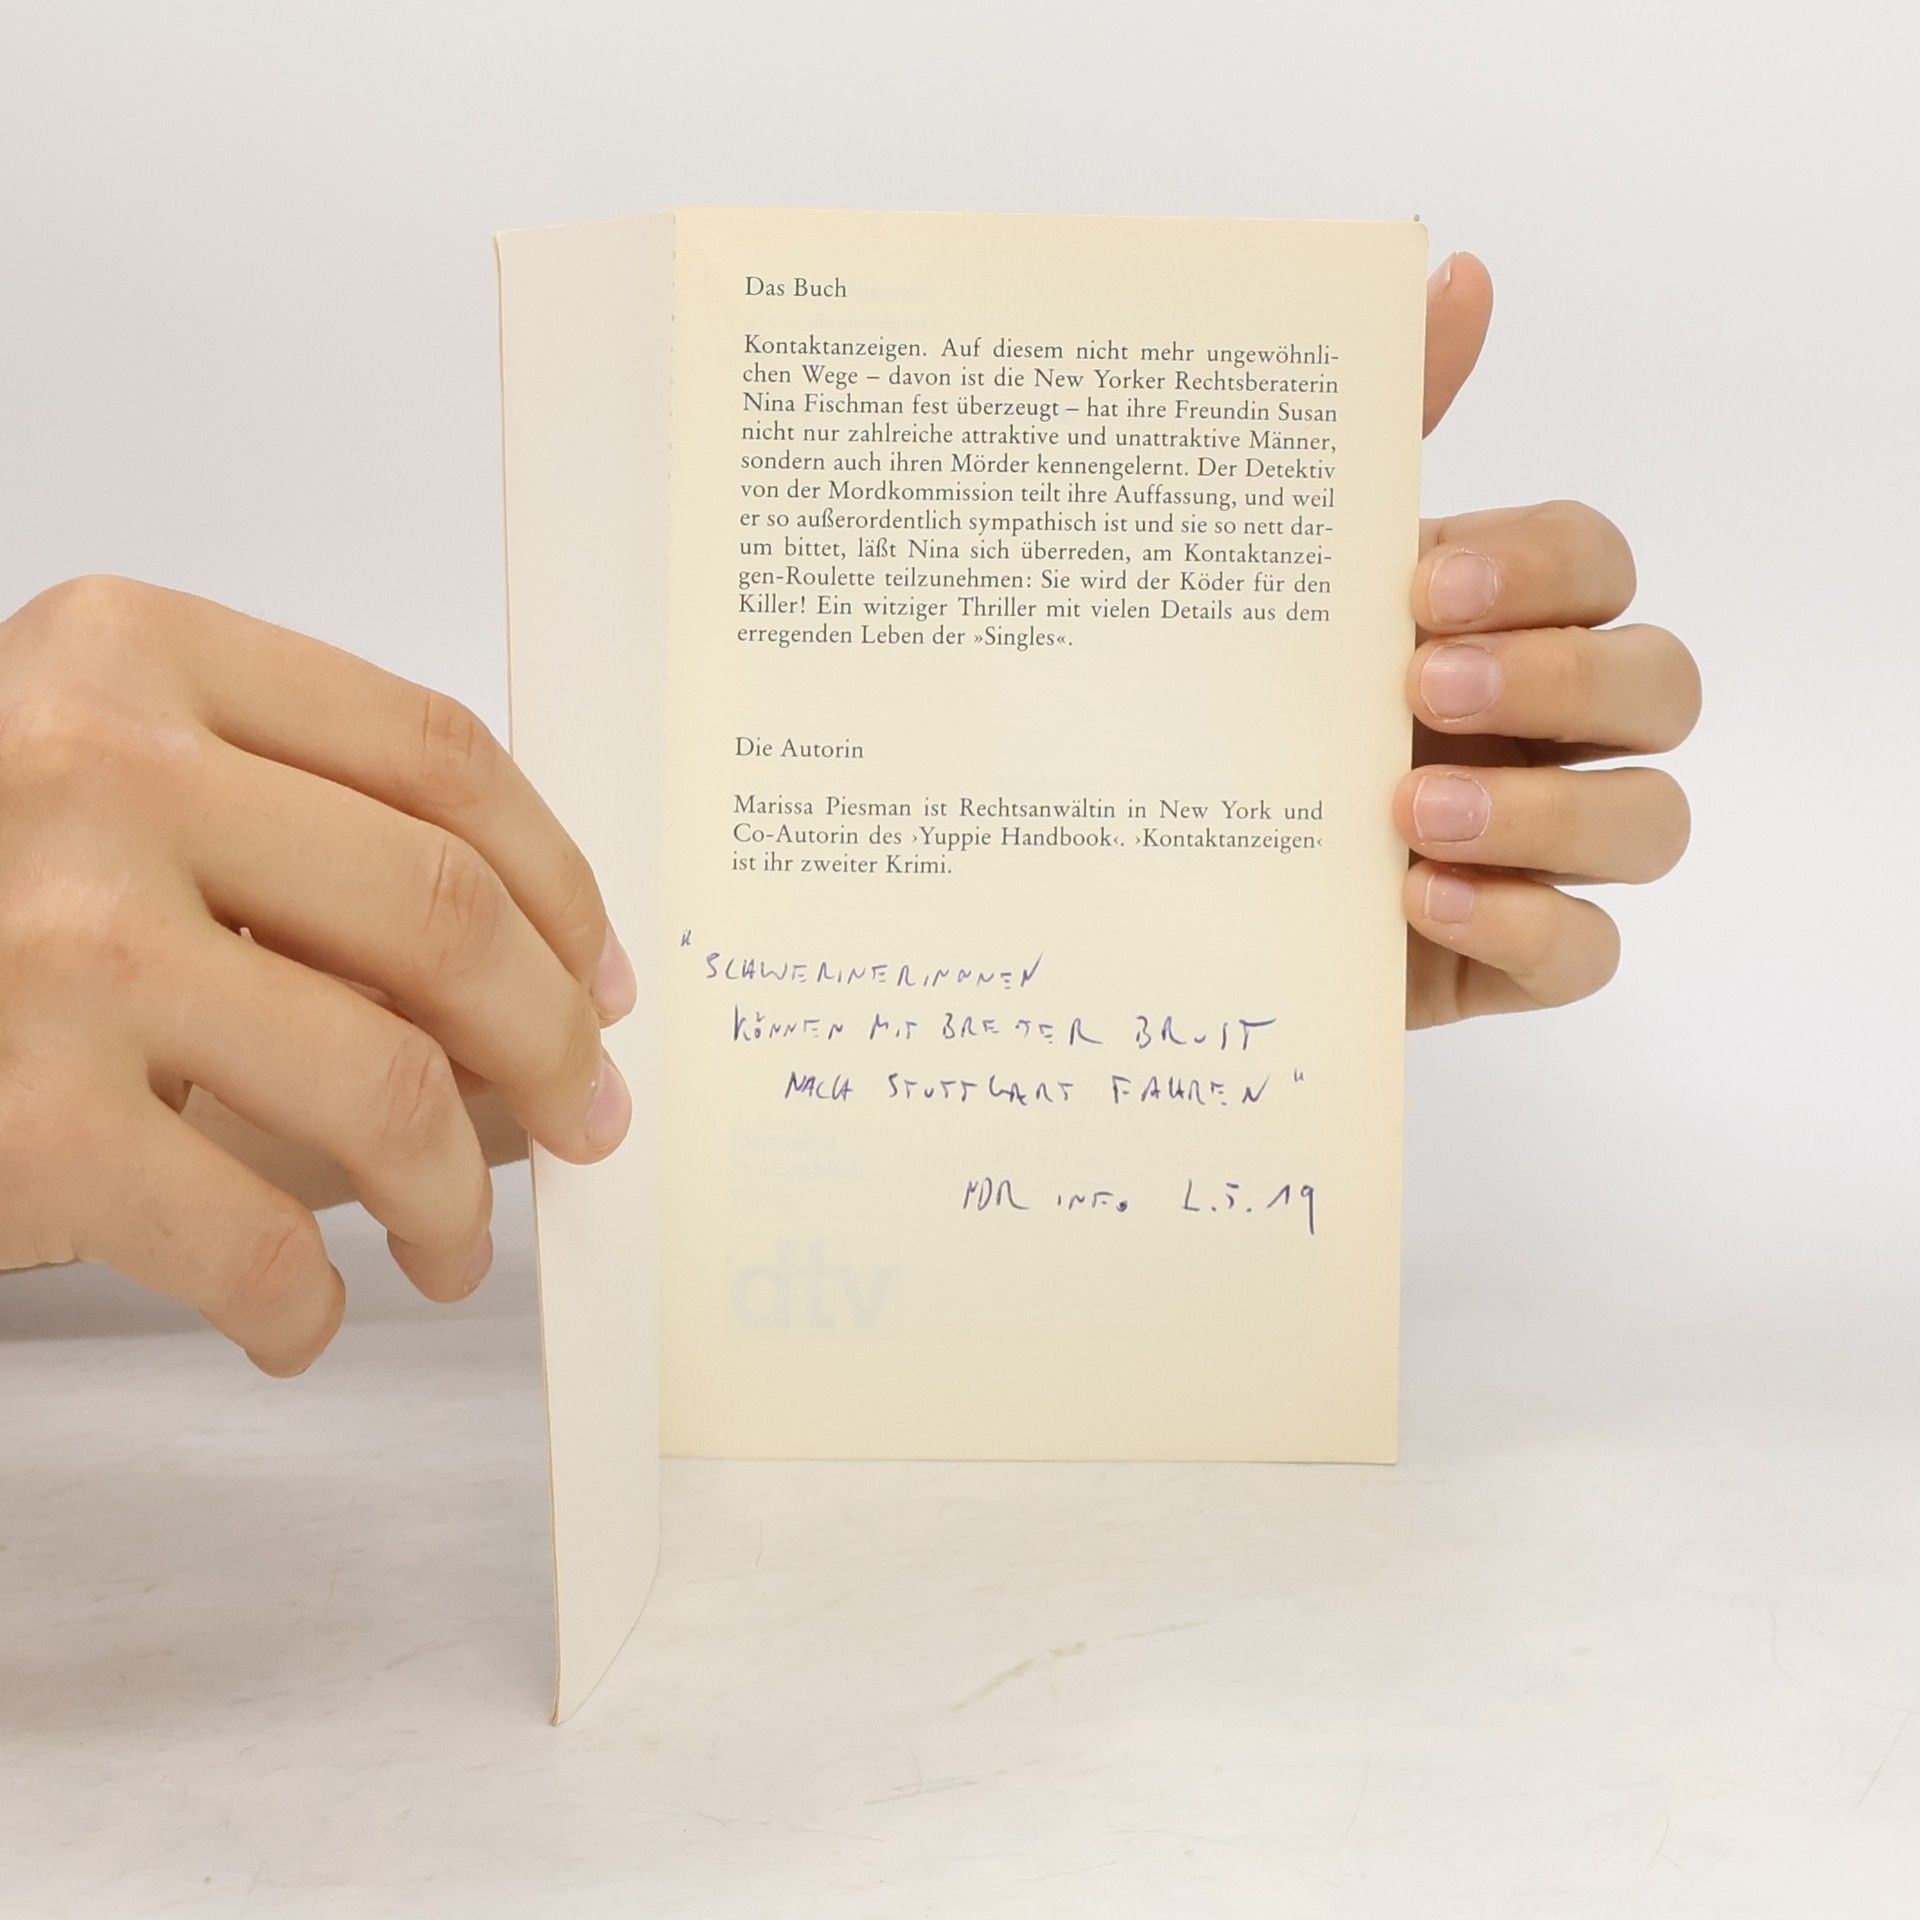 Das Buch
Kontaktanzeigen. Auf diesem nicht mehr ungewöhnli-
chen Wege – davon ist die New Yorker Rechtsberaterin
Nina Fischman fest überzeugt – hat ihre Freundin Susan
nicht nur zahlreiche attraktive und unattraktive Männer,
sondern auch ihren Mörder kennengelernt. Der Detektiv
von der Mordkommission teilt ihre Auffassung, und weil
er so außerordentlich sympathisch ist und sie so nett dar-
um bittet, läßt Nina sich überreden, am Kontaktanzei-
gen-Roulette teilzunehmen: Sie wird der Köder für den
Killer! Ein witziger Thriller mit vielen Details aus dem
erregenden Leben der »Singles«.
Die Autorin
Marissa Piesman ist Rechtsanwältin in New York und
Co-Autorin des ›Yuppie Handbook‹. ›Kontaktanzeigen‹
ist ihr zweiter Krimi.
"SCHWERINERINNEN
KÖNNEN MIT BREITER BRUST
NACH STUTTGART FAHREN"
NDR INFO 2.5.19
dtv